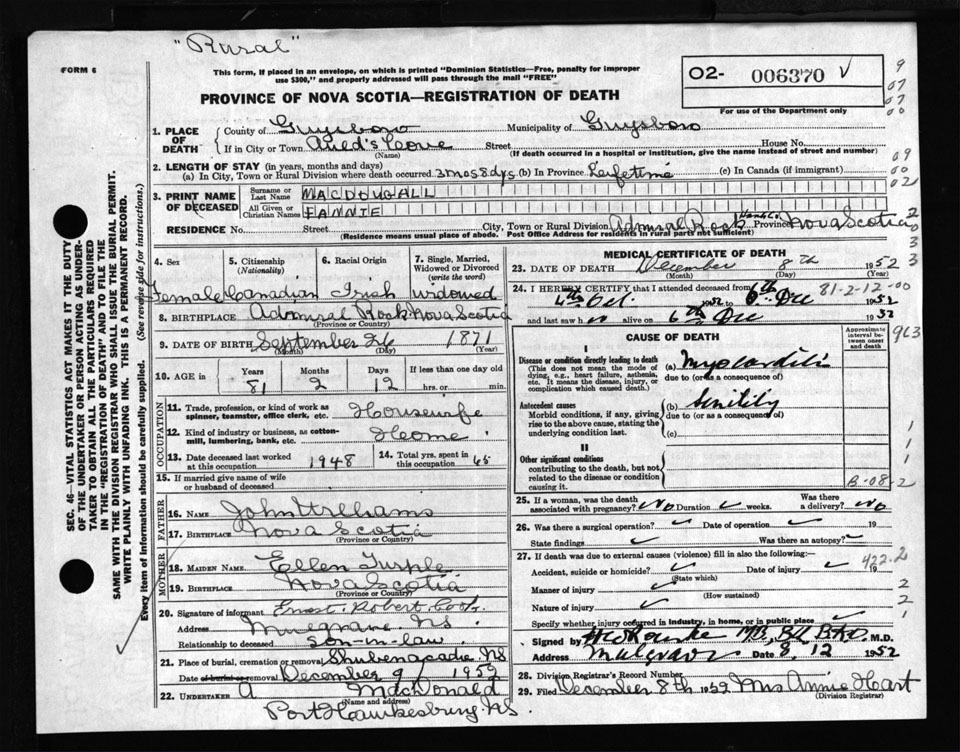 "Rural"
FORM 6
This form, if placed in an envelope, on which is printed "Dominion Statistics—Free, penalty for improper
use $300," and properly addressed will pass through the mail "FREE"
O2- 006370 V
For use of the Department only
PROVINCE OF NOVA SCOTIA—REGISTRATION OF DEATH
1. PLACE OF DEATH
County of Guysboro Municipality of Guysboro
If in City or Town Auld's Cove Street House No.
(Name) (If death occurred in a hospital or institution, give the name instead of street and number)
2. LENGTH OF STAY (in years, months and days)
(a) In City, Town or Rural Division where death occurred 3mos 8dys (b) In Province Lifetime (c) In Canada (if immigrant)
3. PRINT NAME OF DECEASED
Surname or Last Name MACDOUGALL
All Given or Christian Names FANNIE
RESIDENCE No. Street City, Town or Rural Division Admiral Rock Hants Co. Province Nova Scotia
(Residence means usual place of abode. Post Office Address for residents in rural parts not sufficient)
4. Sex
5. Citizenship (Nationality)
6. Racial Origin
7. Single, Married, Widowed or Divorced (write the word)
Female Canadian Irish widowed
8. BIRTHPLACE Admiral Rock Nova Scotia
(Province or Country)
9. DATE OF BIRTH September 26 1871
(Month) (Day) (Year)
10. AGE in Years Months Days If less than one day old
81 2 12 hrs. or min.
OCCUPATION
11. Trade, profession, or kind of work as spinner, teamster, office clerk, etc. Housewife
12. Kind of industry or business, as cotton-mill, lumbering, bank, etc. Home
13. Date deceased last worked at this occupation 1948
14. Total yrs. spent in this occupation 65
15. If married give name of wife or husband of deceased
FATHER
16. NAME John Williams
17. BIRTHPLACE Nova Scotia
(Province or Country)
MOTHER
18. MAIDEN NAME Ellen Turple
19. BIRTHPLACE Nova Scotia
(Province or Country)
20. Signature of informant Ernest Robert
Address Mulgrave NS
Relationship to deceased son-in-law
21. Place of burial, cremation or removal Shubenacadie NS
Date of burial or removal December 9 1952
22. UNDERTAKER A MacDonald
(Name and address)
Port Hawkesbury NS.
MEDICAL CERTIFICATE OF DEATH
23. DATE OF DEATH December 8th 1952
(Month) (Day) (Year)
24. I HEREBY CERTIFY that I attended deceased from
4th Oct. 1952 to 6th Dec 1952
81-2-12-00
and last saw h alive on 6th Dec 1952
CAUSE OF DEATH
Approximate interval between onset and death
I
Disease or condition directly leading to death
(This does not mean the mode of dying, e.g., heart failure, asthenia, etc. It means the disease, injury, or complication which caused death.)
(a) Myocarditis
due to (or as a consequence of)
Antecedent causes
Morbid conditions, if any, giving rise to the above cause, stating the underlying condition last.
(b) Senility
due to (or as a consequence of)
(c)
II
Other significant conditions
contributing to the death, but not related to the disease or condition causing it.
B-08-2
25. If a woman, was the death associated with pregnancy? No Duration weeks. Was there a delivery? No
26. Was there a surgical operation? Date of operation 19
State findings Was there an autopsy?
27. If death was due to external causes (violence) fill in also the following:
422-2
Accident, suicide or homicide? Date of injury 19
(State which)
Manner of injury
(How sustained)
Nature of injury
Specify whether injury occurred in industry, in home, or in public place
Signed by M.D.
Address Mulgrave Date 8.12 1952
28. Division Registrar's Record Number
29. Filed December 8th 1952 Mrs Annie Hart
(Division Registrar)
SEC. 46—VITAL STATISTICS ACT MAKES IT THE DUTY
OF THE UNDERTAKER OR PERSON ACTING AS UNDER-
TAKER TO OBTAIN ALL THE PARTICULARS REQUIRED
IN THE "REGISTRATION OF DEATH" AND TO FILE THE
SAME WITH THE DIVISION REGISTRAR WHO SHALL ISSUE THE BURIAL PERMIT.
WRITE PLAINLY WITH UNFADING INK. THIS IS A PERMANENT RECORD.
Every item of information should be carefully supplied. (See reverse side for instructions.)
9
07
07
00
09
00
02
2
0
3
3
963
1
1
1
2
2
1